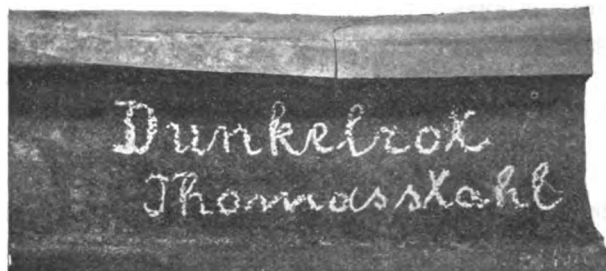 Dunkelrot
Thomasstahl